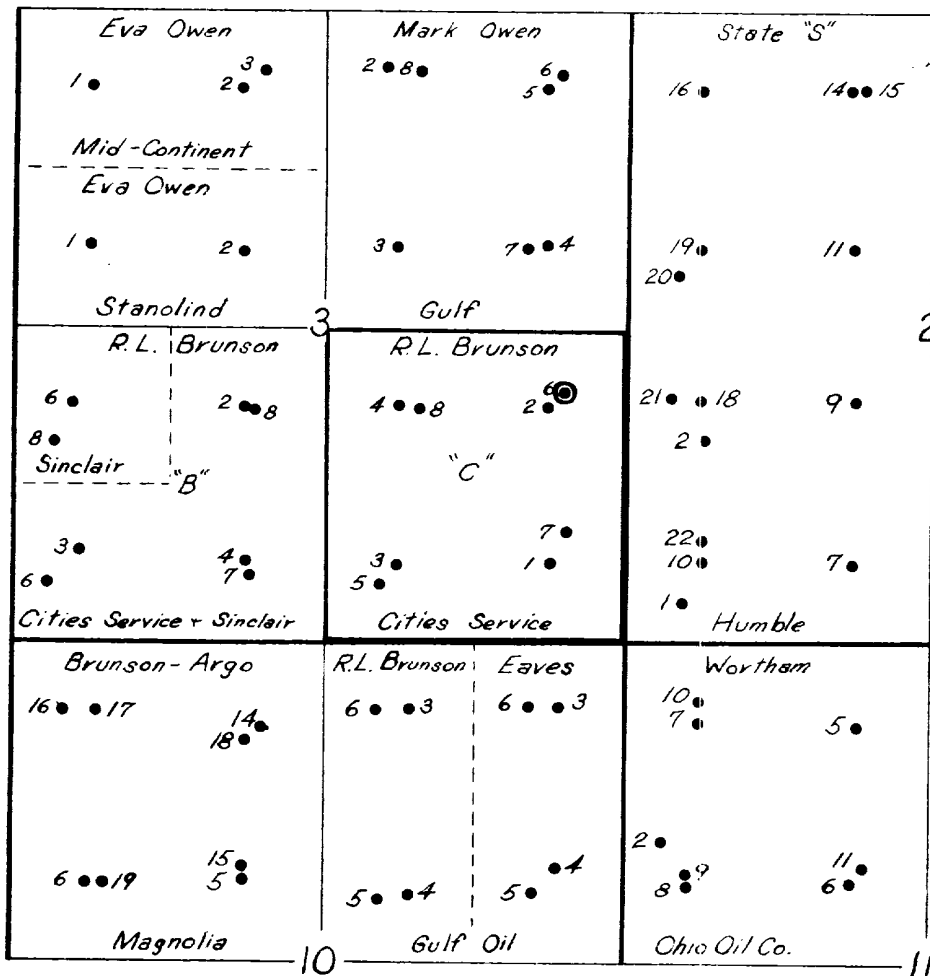 Eva Owen
1 2 3
Mid-Continent
Eva Owen
1 2
Stanolind
Mark Owen
2 8 6
5
3 7 4
Gulf
State "S"
16 14 15
19 11
20
21 18 9
2
22
10 7
1
Humble
3
2
R.L. Brunson
6 2 8
8
Sinclair
"B"
3 4
6 7
Cities Service + Sinclair
R.L. Brunson
6
4 8 2
"C"
7
3 1
5
Cities Service
Brunson-Argo
16 17 14
18
15
6 19 5
Magnolia
R.L. Brunson
6 3
5 4
Eaves
6 3
4
5
Gulf Oil
Wortham
10
7 5
2
9 11
8 6
Ohio Oil Co.
10
11